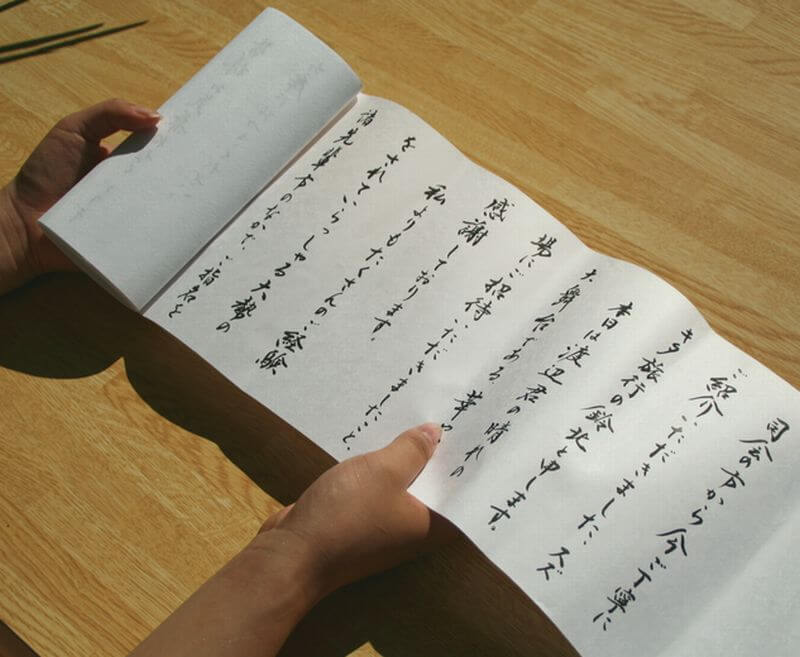 司会の方から今ご丁寧に
ご紹介いただきました、スズ
キタ旅行の鈴北と申します。
本日は渡辺君の晴れの
大舞台である、華
場にご招待いただきましたこと、
感謝しております。
私よりもたくさんのご経験
をされていらっしゃる大勢の
諸先輩方のなかで、ご指名を